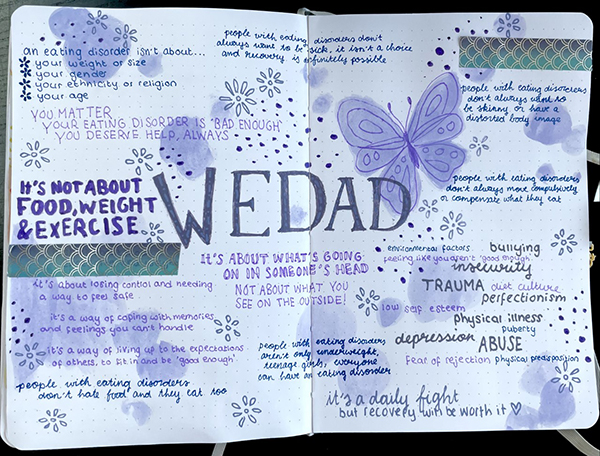 an eating disorder isn't about...
your weight or size
your gender
your ethnicity or religion
your age
YOU MATTER
YOUR EATING DISORDER IS "BAD ENOUGH"
YOU DESERVE HELP, ALWAYS
IT'S NOT ABOUT
FOOD, WEIGHT
& EXERCISE.
people with eating disorders don't
always want to be sick, it isn't a choice
and recovery is definitely possible
people with eating disorders
don't always want to
be skinny or have a
distorted body image
people with eating disorders
don't always move compulsively
or compensate what they eat
WEDAD
IT'S ABOUT WHAT'S GOING
ON IN SOMEONE'S HEAD
NOT ABOUT WHAT YOU
SEE ON THE OUTSIDE!
it's about losing control and needing
a way to feel safe
it's a way of coping with memories
and feelings you can't handle
it's a way of living up to the expectations
of others, to fit in and be 'good enough'
people with eating disorders
don't hate food and they eat too
people with eating disorders
aren't only underweight,
teenage girls, everyone
can have an eating disorder
environmental factors bullying
feeling like you aren't 'good enough'
insecurity
TRAUMA diet culture
perfectionism
low self esteem
physical illness
puberty
depression ABUSE
fear of rejection physical predisposition
it's a daily fight
but recovery will be worth it